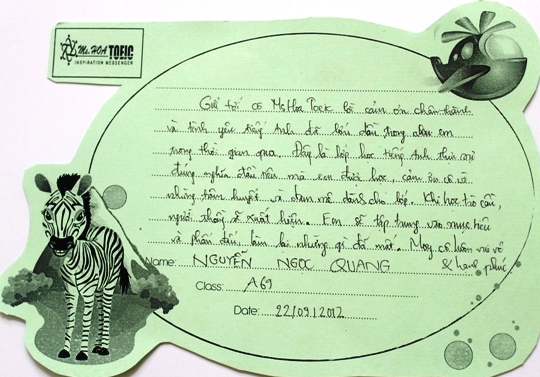 Ms. HOA TOEIC
INSPIRATION MESSENGER
Gửi tới cô Ms Hoa Toeic lời cảm ơn chân thành
và tình yêu tiếng Anh đã lớn dần trong em
trong thời gian qua. Đây là lớp học tiếng Anh theo
đúng nghĩa đầu tiên mà em được học, cảm ơn cô vì
những tâm huyết và đam mê dành cho lớp. Khi học trò cần,
người thầy sẽ xuất hiện. Em sẽ tập trung vào mục tiêu
và phấn đấu làm lại những gì đã mất. Mong cô luôn vui vẻ
& hạnh phúc
Name: NGUYỄN NGỌC QUANG
Class: A69
Date: 22/09/2012